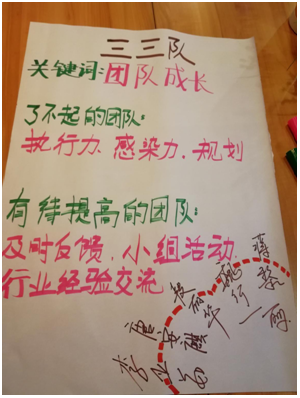 三三队
关键词:团队成长
了不起的团队:
执行力.感染力.规划
有待提高的团队:
及时反馈.小组活动.
行业经验交流